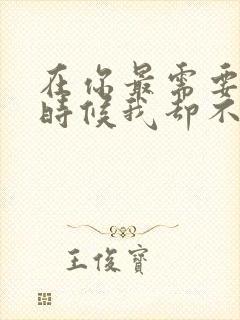 在你最需要
时候我却不
王俊寶